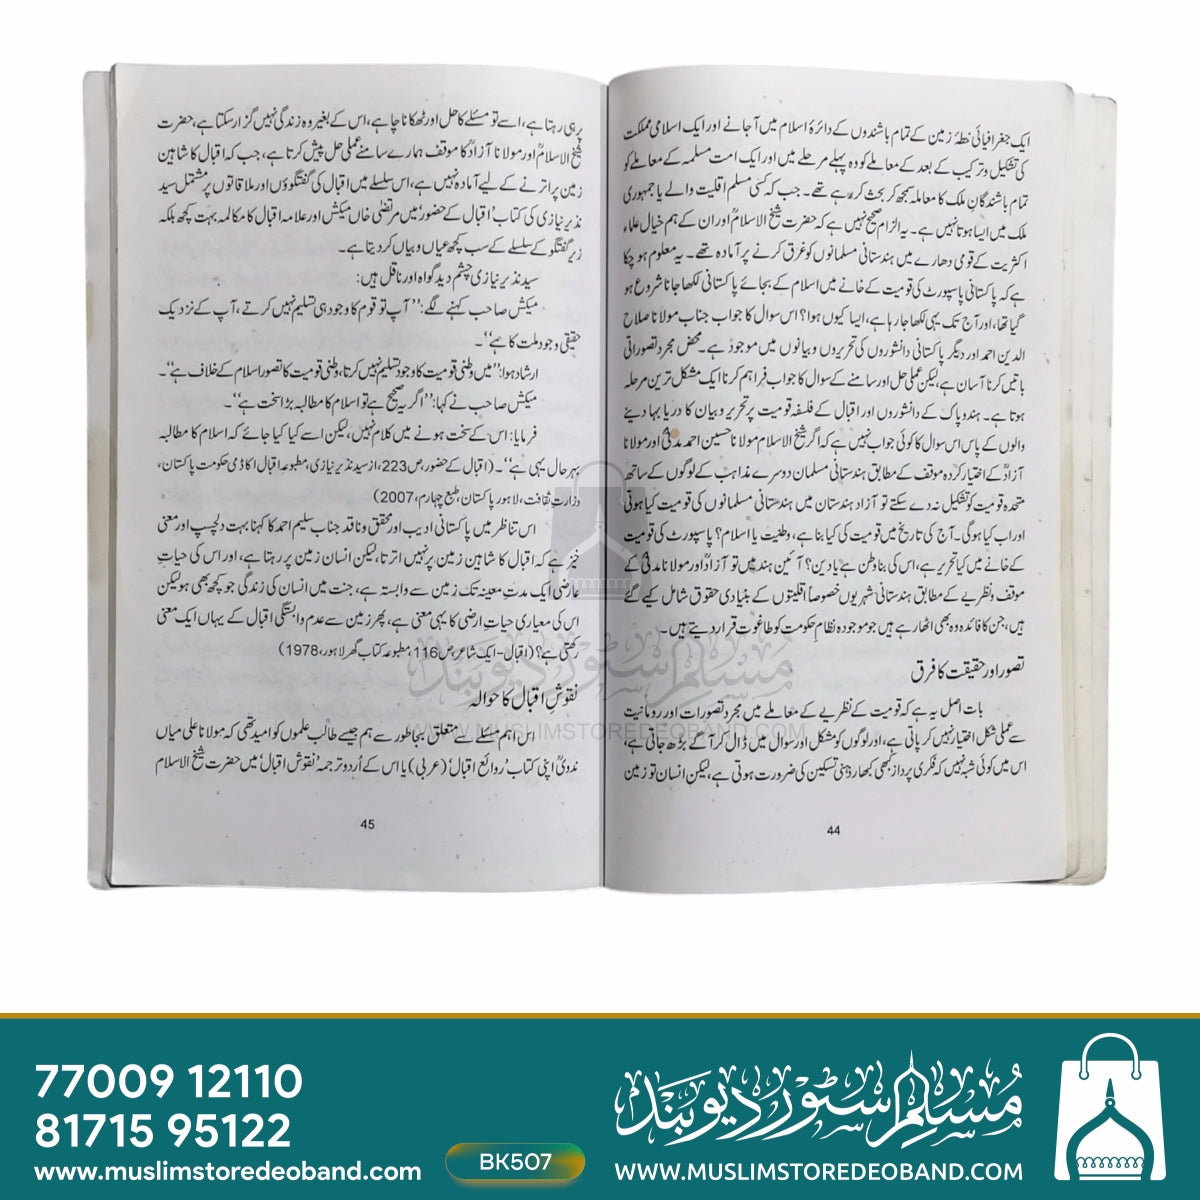 ایک جغرافیائی خطۂ زمین کے تمام باشندوں کے دائرۂ اسلام میں آجانے اور ایک اسلامی مملکت
کی تشکیل و ترکیب کے بعد کے معاملے کو وہ پہلے مرحلے میں اور ایک امت مسلمہ کے معاملے کو
تمام باشندگانِ ملک کا معاملہ سمجھ کر بحث کر رہے تھے۔ جب کہ کسی مسلم اقلیت والے یا جمہوری
ملک میں ایسا ہوتا نہیں ہے۔ یہ الزام صحیح نہیں ہے کہ حضرت شیخ الاسلامؒ اور ان کے ہم خیال علماء
اکثریت کے قومی دھارے میں ہندستانی مسلمانوں کو غرق کرنے پر آمادہ تھے۔ یہ معلوم ہو چکا
ہے کہ پاکستانی پاسپورٹ کی قومیت کے خانے میں اسلام کے بجائے پاکستانی لکھا جانا شروع ہو
گیا تھا، اور آج تک یہی لکھا جا رہا ہے، ایسا کیوں ہوا؟ اس سوال کا جواب جناب مولانا صلاح
الدین احمد اور دیگر پاکستانی دانشوروں کی تحریروں و بیانوں میں موجود ہے۔ محض مجرد تصوراتی
باتیں کرنا آسان ہے، لیکن عملی حل اور سامنے کے سوال کا جواب فراہم کرنا ایک مشکل ترین مرحلہ
ہوتا ہے۔ ہندوپاک کے دانشوروں اور اقبال کے فلسفہ قومیت پر تحریر و بیان کا دریا بہا دینے
والوں کے پاس اس سوال کا کوئی جواب نہیں ہے کہ اگر شیخ الاسلام مولانا حسین احمد مدنیؒ اور مولانا
آزادؒ کے اختیار کردہ موقف کے مطابق ہندستانی مسلمان دوسرے مذاہب کے لوگوں کے ساتھ
متحدہ قومیت کو تشکیل نہ دے سکتے تو آزاد ہندستان میں ہندستانی مسلمانوں کی قومیت کیا ہوتی
اور اب کیا ہوگی۔ آج کی تاریخ میں قومیت کی کیا بنا ہے، وطنیت یا اسلام؟ پاسپورٹ کی قومیت
کے خانے میں کیا تحریر ہے، اس کی بنا وطن ہے یا دین؟ آئین ہند میں تو آزادؒ اور مولانا مدنیؒ کے
موقف و نظریے کے مطابق ہندستانی شہریوں خصوصاً اقلیتوں کے بنیادی حقوق شامل کیے گئے
ہیں، جن کا فائدہ وہ بھی اٹھا رہے ہیں جو موجودہ نظام حکومت کو طاغوت قرار دیتے ہیں۔
تصور اور حقیقت کا فرق
بات اصل یہ ہے کہ قومیت کے نظریے کے معاملے میں مجرد تصورات اور رومانیت
سے عملی شکل اختیار نہیں کر پاتی ہے، اور لوگوں کو مشکل اور سوال میں ڈال کر آگے بڑھ جاتی ہے،
اس میں کوئی شبہ نہیں کہ فکری پرداز کبھی کبھار ذہنی تسکین کی ضرورت ہوتی ہے، لیکن انسان تو زمین
44
پر ہی رہتا ہے، اسے تو مسئلے کا حل اور ٹھکانا چاہے، اس کے بغیر وہ زندگی نہیں گزار سکتا ہے، حضرت
شیخ الاسلامؒ اور مولانا آزادؒ کا موقف ہمارے سامنے عملی حل پیش کرتا ہے، جب کہ اقبال کا شاہین
زمین پر اترنے کے لیے آمادہ نہیں ہے، اس سلسلے میں اقبال کی گفتگوؤں اور ملاقاتوں پر مشتمل سید
نذیر نیازی کی کتاب 'اقبال کے حضور' میں مرتضیٰ خاں میکش اور علامہ اقبال کا مکالمہ بہت کچھ بلکہ
زیر گفتگو کے سلسلے کے سب کچھ عیاں و بیاں کر دیتا ہے۔
سید نذیر نیازی چشم دید گواہ اور ناقل ہیں:
میکش صاحب کہنے لگے: "آپ تو قوم کا وجود ہی تسلیم نہیں کرتے، آپ کے نزدیک
حقیقی وجود ملت کا ہے"۔
ارشاد ہوا: "میں وطنی قومیت کا وجود تسلیم نہیں کرتا، وطنی قومیت کا تصور اسلام کے خلاف ہے"۔
میکش صاحب نے کہا: "اگر یہ صحیح ہے تو اسلام کا مطالبہ بڑا سخت ہے"۔
فرمایا: اس کے سخت ہونے میں کلام نہیں، لیکن اسے کیا کیا جائے کہ اسلام کا مطالبہ
بہر حال یہی ہے"۔ (اقبال کے حضور، ص 223، از سید نذیر نیازی، مطبوعہ اقبال اکاڈمی حکومت پاکستان،
وزارتِ ثقافت، لاہور پاکستان، طبع چہارم، 2007)
اس تناظر میں پاکستانی ادیب اور محقق و ناقد جناب سلیم احمد کا کہنا بہت دلچسپ اور معنی
خیز ہے کہ اقبال کا شاہین زمین پر نہیں اترتا، لیکن انسان زمین پر رہتا ہے، اور اس کی حیاتِ
عارضی ایک مدت معینہ تک زمین سے وابستہ ہے، جنت میں انسان کی زندگی جو کچھ بھی ہو لیکن
اس کی معیاری حیات ارضی کا یہی معنی ہے، پھر زمین سے عدم وابستگی اقبال کے یہاں ایک معنی
رکھتی ہے؟ (اقبال-ایک شاعر، ص 116، مطبوعہ کتاب گھر لاہور، 1978)
نقوشِ اقبال کا حوالہ
اس اہم مسئلے سے متعلق بجا طور سے ہم جیسے طالب علموں کو امید تھی کہ مولانا علی میاں
ندویؒ اپنی کتاب 'روائع اقبال' (عربی) یا اس کے اُردو ترجمہ 'نقوش اقبال' میں حضرت شیخ الاسلام
45
مسلم سٹور دیوبند
WWW.MUSLIMSTOREDEOBAND.COM
77009 12110
81715 95122
www.muslimstoredeoband.com
BK507
مسلم سٹور دیوبند
WWW.MUSLIMSTOREDEOBAND.COM